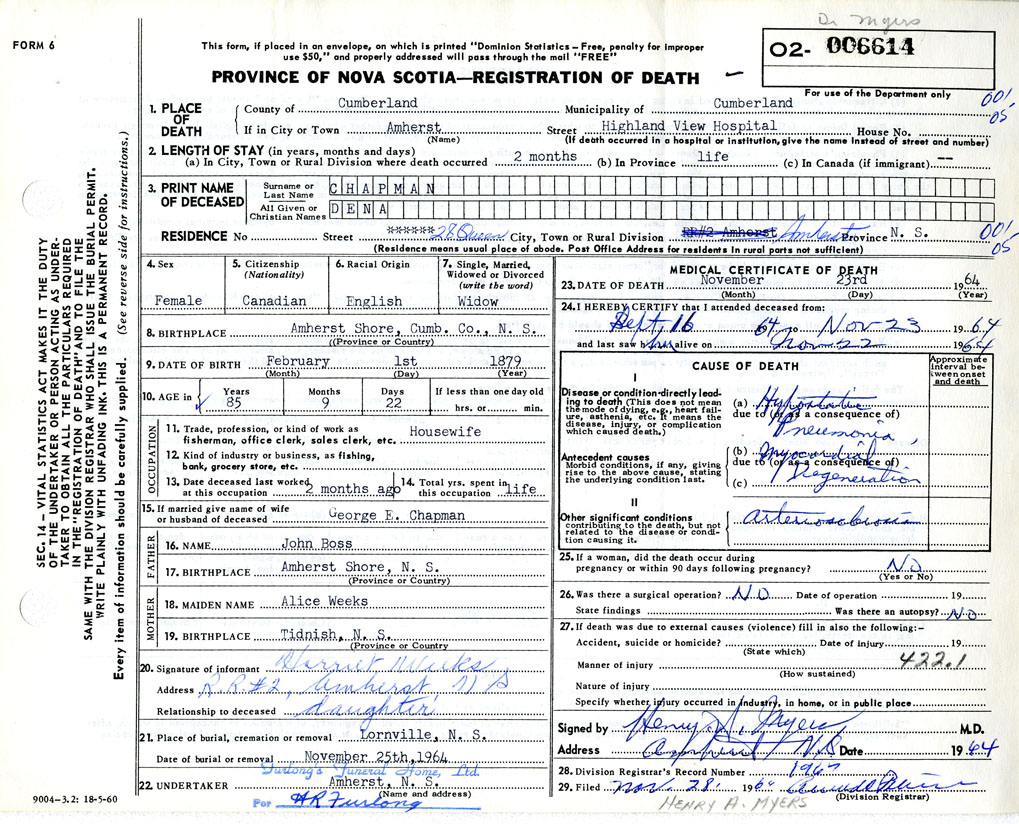 Dr Myers
FORM 6
This form, if placed in an envelope, on which is printed "Dominion Statistics – Free, penalty for improper
use $50," and properly addressed will pass through the mail "FREE"
O2- 006614
PROVINCE OF NOVA SCOTIA—REGISTRATION OF DEATH
For use of the Department only
1. PLACE OF DEATH
County of Cumberland Municipality of Cumberland 001
05
If in City or Town Amherst Street Highland View Hospital House No.
(Name) (If death occurred in a hospital or institution, give the name instead of street and number)
2. LENGTH OF STAY (in years, months and days)
(a) In City, Town or Rural Division where death occurred 2 months (b) In Province life (c) In Canada (if immigrant) --
3. PRINT NAME OF DECEASED
Surname or Last Name CHAPMAN
All Given or Christian Names DENA
RESIDENCE No Street ****** 28 Queen City, Town or Rural Division RR#2 Amherst Amherst Province N. S. 001
05
(Residence means usual place of abode. Post Office Address for residents in rural parts not sufficient)
4. Sex
Female
5. Citizenship
(Nationality)
Canadian
6. Racial Origin
English
7. Single, Married,
Widowed or Divorced
(write the word)
Widow
8. BIRTHPLACE Amherst Shore, Cumb. Co., N. S.
((Province or Country)
9. DATE OF BIRTH February 1st 1879
(Month) (Day) (Year)
10. AGE in Years Months Days If less than one day old
85 9 22 hrs. or min.
OCCUPATION
11. Trade, profession, or kind of work as Housewife
fisherman, office clerk, sales clerk, etc.
12. Kind of industry or business, as fishing,
bank, grocery store, etc.
13. Date deceased last worked
at this occupation 2 months ago
14. Total yrs. spent in
this occupation life
15. If married give name of wife
or husband of deceased George E. Chapman
FATHER
16. NAME John Boss
17. BIRTHPLACE Amherst Shore, N. S.
(Province or Country)
MOTHER
18. MAIDEN NAME Alice Weeks
19. BIRTHPLACE Tidnish, N. S.
(Province or Country
20. Signature of informant Harriet Weeks
Address R.R.#2, Amherst, N S
Relationship to deceased daughter
21. Place of burial, cremation or removal Lornville, N. S.
Date of burial or removal November 25th, 1964
Furlong's Funeral Home, Ltd.
22. UNDERTAKER Amherst, N. S.
(Name and address)
For HR Furlong
9004-3.2: 18-5-60
SEC. 14 – VITAL STATISTICS ACT MAKES IT THE DUTY
OF THE UNDERTAKER OR PERSON ACTING AS UNDER-
TAKER TO OBTAIN ALL THE PARTICULARS REQUIRED
IN THE "REGISTRATION OF DEATH" AND TO FILE THE
SAME WITH THE DIVISION REGISTRAR WHO SHALL ISSUE THE BURIAL PERMIT.
WRITE PLAINLY WITH UNFADING INK. THIS IS A PERMANENT RECORD.
Every item of information should be carefully supplied. (See reverse side for instructions.)
MEDICAL CERTIFICATE OF DEATH
23. DATE OF DEATH November 23rd 1964
(Month) (Day) (Year)
24. I HEREBY CERTIFY that I attended deceased from:
Sept, 16 64 to Nov 23 1964
and last saw her alive on Nov 22 1964
CAUSE OF DEATH
Approximate
interval be-
tween onset
and death
I
Disease or condition directly lead-
ing to death (This does not mean
the mode of dying, e.g., heart fail-
ure, asthenia, etc. It means the
disease, injury, or complication
which caused death.)
(a) Hypostatic
due to (or as a consequence of)
Pneumonia,
Antecedent causes
Morbid conditions, if any, giving
rise to the above cause, stating
the underlying condition last.
(b) Myocardial
due to (or as a consequence of)
(c) Degeneration
II
Other significant conditions
contributing to the death, but not
related to the disease or condi-
tion causing it.
Arteriosclerosis
25. If a woman, did the death occur during
pregnancy or within 90 days following pregnancy? NO
(Yes or No)
26. Was there a surgical operation? NO Date of operation 19
State findings Was there an autopsy? NO
27. If death was due to external causes (violence) fill in also the following:–
Accident, suicide or homicide? Date of injury 19
(State which)
Manner of injury 422.1
(How sustained)
Nature of injury
Specify whether injury occurred in industry, in home, or in public place
Signed by Henry A. Myers M.D.
Address Amherst N.S Date 1964
28. Division Registrar's Record Number
29. Filed Nov. 28. 196
(Division Registrar)
HENRY A. MYERS